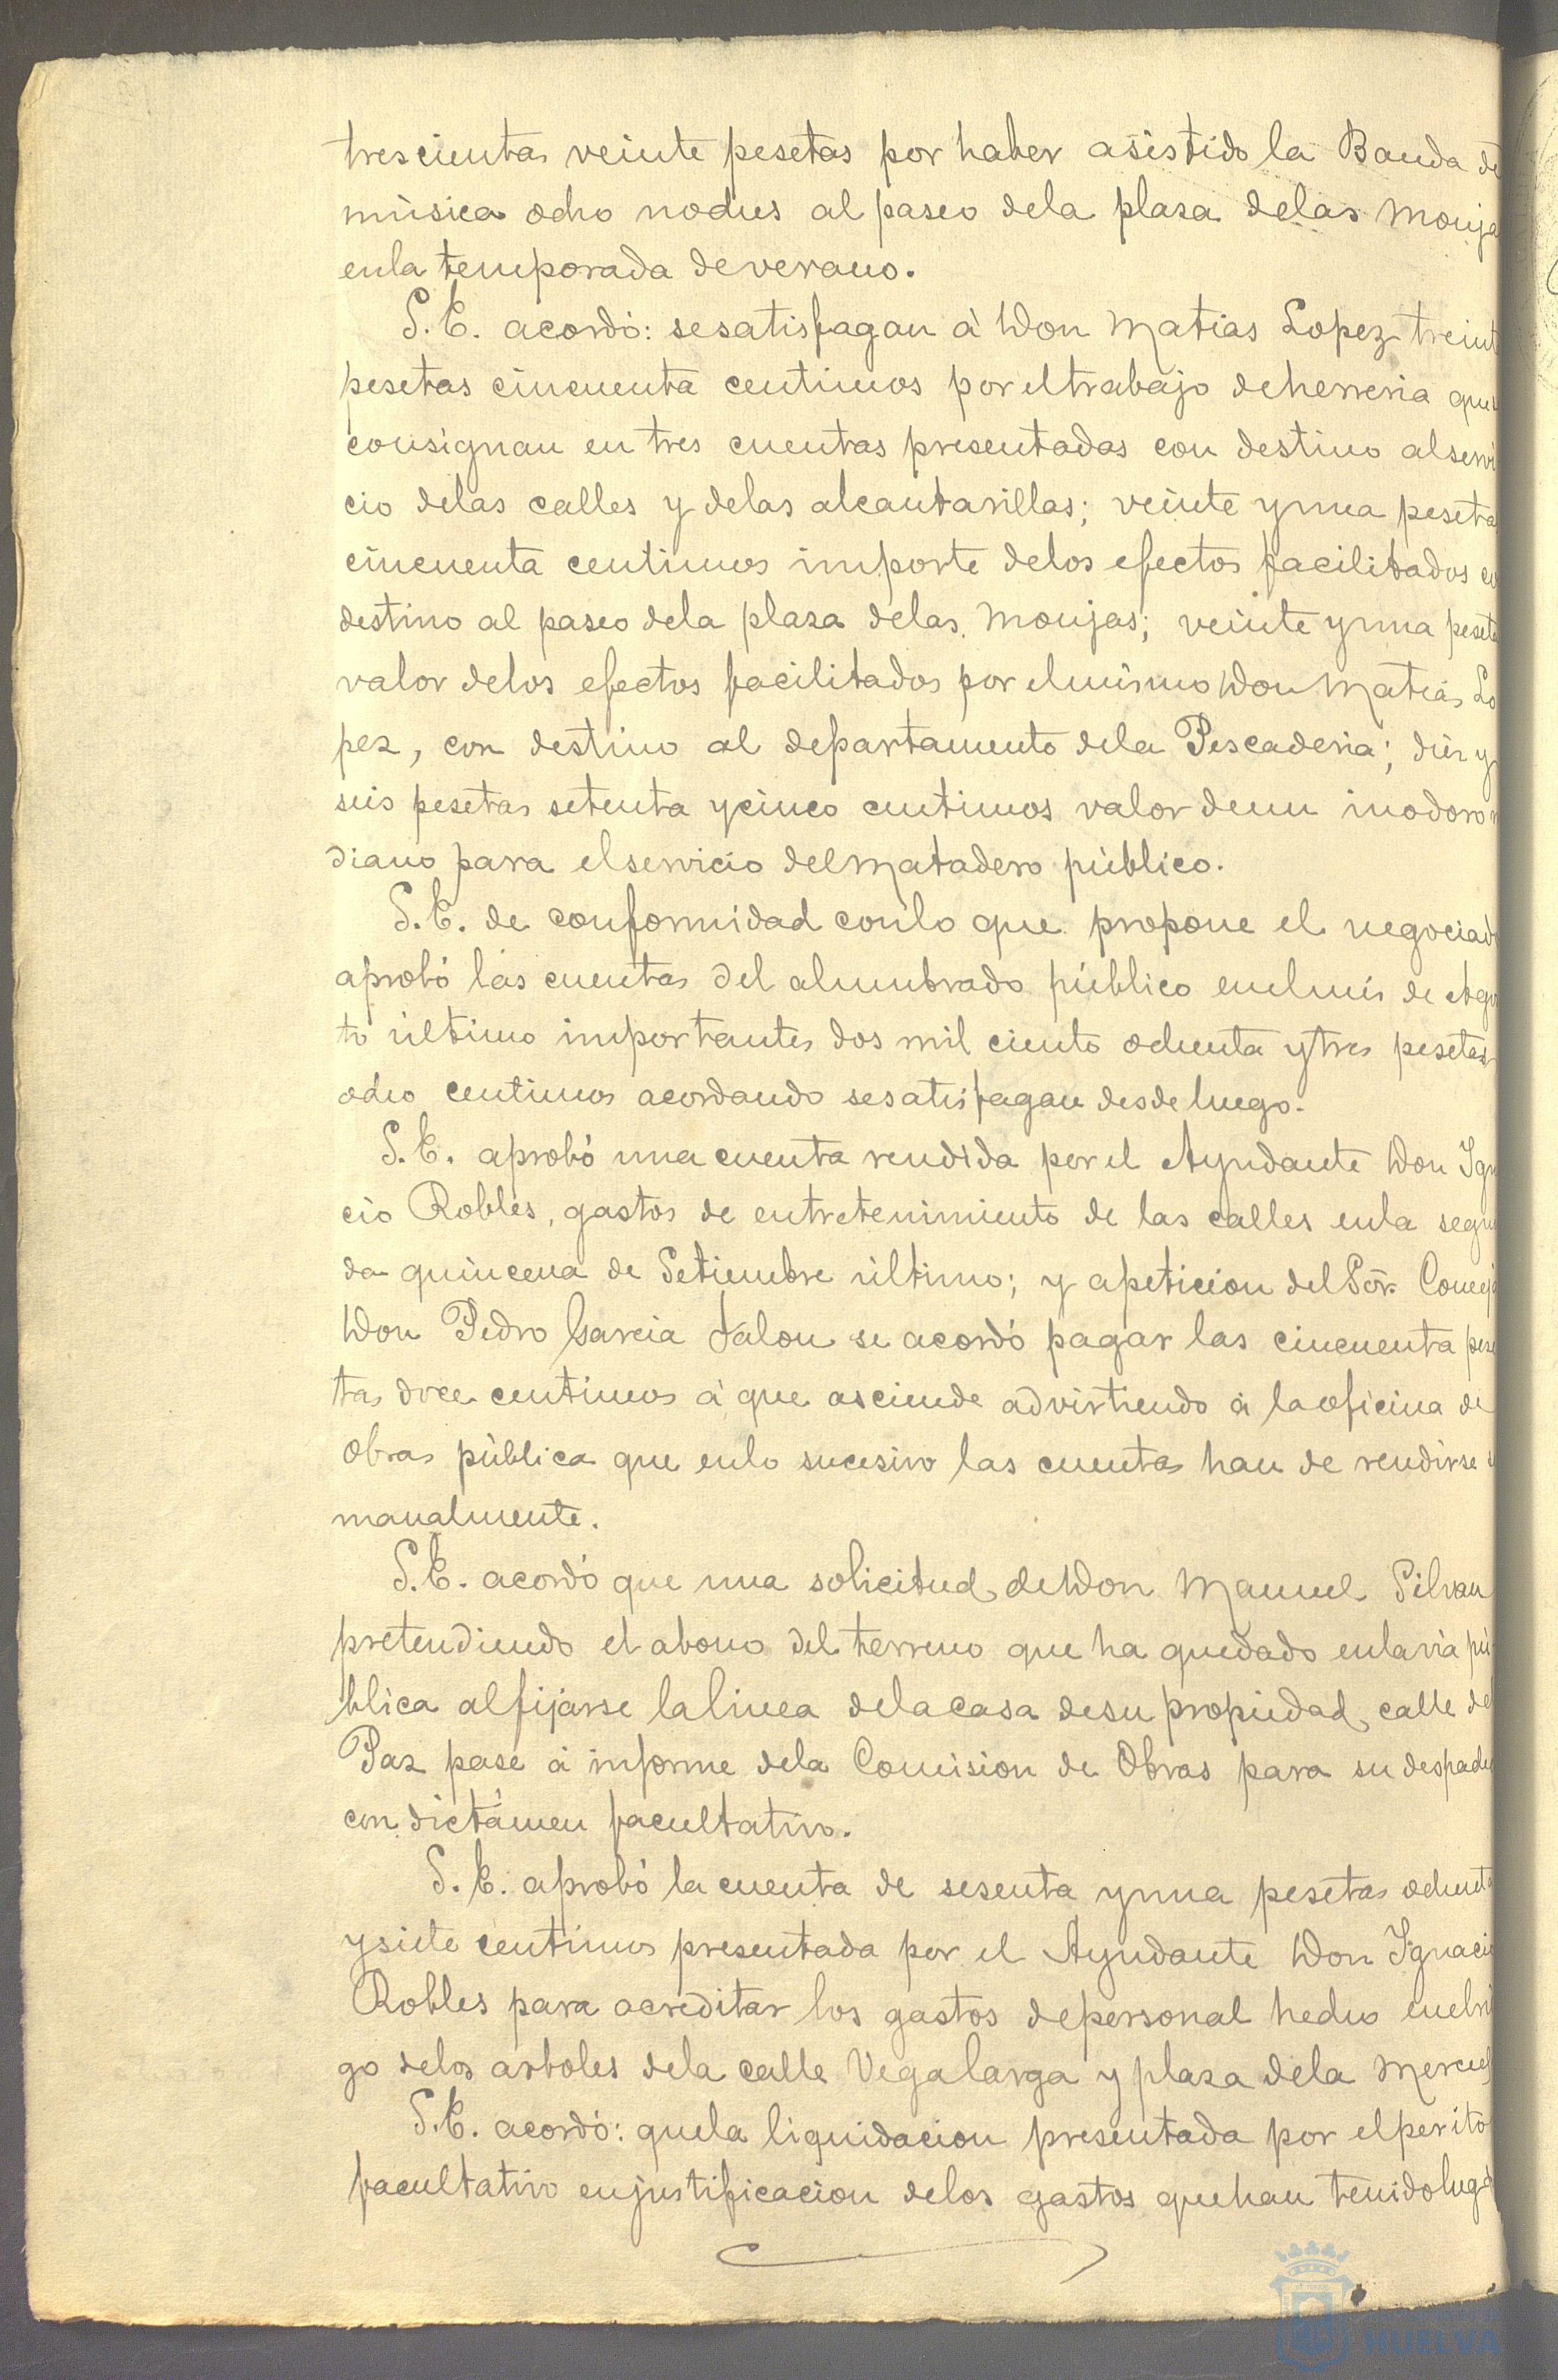 trescientas veinte pesetas por haber asistido la Banda de
música ocho noches al paseo dela plaza delas Monja
enla temporada deverano.
S.E. acordó: sesatisfagan á Don Matias Lopez treint
pesetas cincuenta centimos por eltrabajo deherreria que
consignan en tres cuentas presentadas con destino alservi
cio delas calles y delas alcantarillas; veinte yuna peseta
cincuenta centimos importe delos efectos facilitados co
destino al paseo dela plaza delas Monjas; veinte yuna peseta
valor delos efectos facilitados por elmismo Don Matias Lo
pez, con destino al departamento dela Pescaderia; diez y
seis pesetas setenta ycinco centimos valor deun inodoro
diano para elservicio delmatadero público.
S.E. de conformidad conlo que propone el negociado
aprobó las cuentas del alumbrado público enelmes de Agos
to último importantes dos mil ciento ochenta ytres pesetas
ocho centimos acordando sesatisfagan desde luego.
S.E. aprobó una cuenta rendida por el Ayudante Don Igna
cio Robles, gastos de entretenimiento de las calles enla segun
da quincena de Setiembre último; y apeticion del Sör. Concej
Don Pedro Garcia Jalon se acordó pagar las cincuenta pese
tas doce centimos á que asciende advirtiendo á laoficina de
Obras pública que enlo sucesivo las cuentas han de rendirse
manalmente.
S.E. acordó que una solicitud de Don Manuel Silvan
pretendiendo el abono del terreno que ha quedado enlavía pú
blica alfijarse lalinea delacasa desu propiedad calle de
Paz pase á informe dela Comision de Obras para su despacho
con dictámen facultativo.
S.E. aprobó la cuenta de sesenta yuna pesetas ochenta
ysiete centimos presentada por el Ayudante Don Ignacio
Robles para acreditar los gastos depersonal hecho enelrie
go delos arboles dela calle Vegalarga y plaza dela Merced
S.E. acordó: quela liquidacion presentada por elperito
facultativo enjustificacion delos gastos quehan tenidolugar
HUELVA